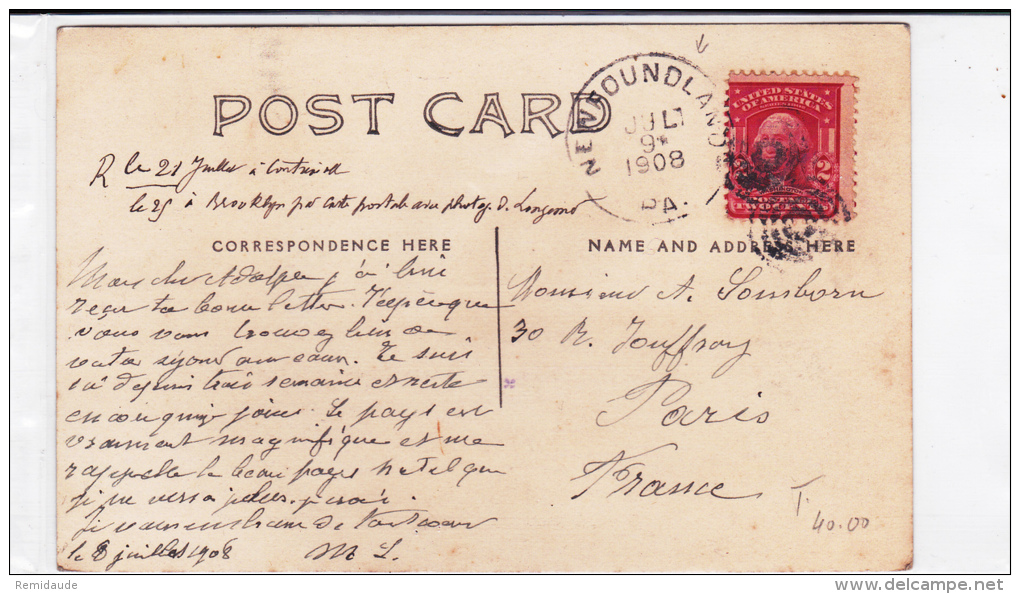 POST CARD
NEWFOUNDLAND
JUL
9
1908
PA.
UNITED STATES
OF AMERICA
2
TWO CENTS
R le 21 Juillet à
le 25 à Brooklyn par carte postale avec photog. D.
CORRESPONDENCE HERE
NAME AND ADDRESS HERE
Mon cher Adolphe, j'ai bien
reçu ta bonne lettre. J'espère que
vous vous trouvez bien de
votre séjour aux eaux. Je suis
ici depuis trois semaines et reste
encore jours. Le pays est
vraiment magnifique et me
rappelle le beau pays natal que
je ne verrai plus
de tout cœur
le 8 juillet 1908 M L.
Monsieur A. Somborn
30 R. Jouffroy
Paris
France
T.
40.00
Remidaude
www.delcampe.net